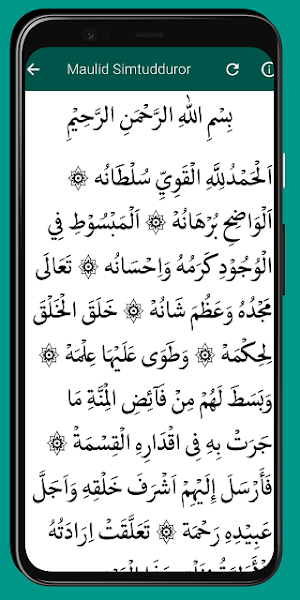 Maulid Simtudduror
بِسْمِ اللهِ الرَّحْمَنِ الرَّحِيْمِ
اَلْحَمْدُلِلَّهِ الْقَوِيِّ سُلْطَانُه ۞
اَلْوَاضِحِ بُرْهَانُهْ ۞ اَلْمَبْسُوْطِ فِي
الْوُجُوْدِ كَرَمُهُ وَاِحْسَانُه ۞ تَعَالَى
مَجْدُهُ وَعَظُمَ شَانُهْ ۞ خَلَقَ الْخَلْقَ
لِحِكْمَهْ ۞ وَطَوَى عَلَيْهَا عِلْمَهْ ۞
وَبَسَطَ لَهُمْ مِنْ فَائِضِ الْمِنَّةِ مَا
جَرَتْ بِهِ فِى اَقْدَارِهِ الْقِسْمَةْ ۞
فَأَرْسَلَ إِلَيْهِمْ اَشْرَفَ خَلْقِهِ وَاَجَلَّ
عَبِيْدِهِ رَحْمَة ۞ تَعَلَّقَتْ اِرَادَتُهُ